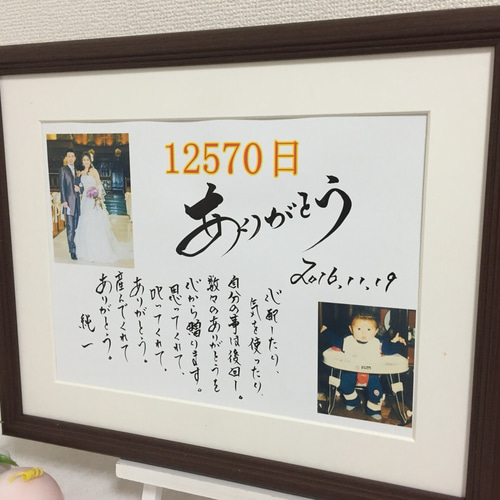 12570日
ありがとう
2016.11.19
心配したり、
気を使ったり、
自分の事は後回し。
数々のありがとうを
心から贈ります。
思ってくれて、
叱ってくれて、
ありがとう。
産んでくれて
ありがとう。
純一